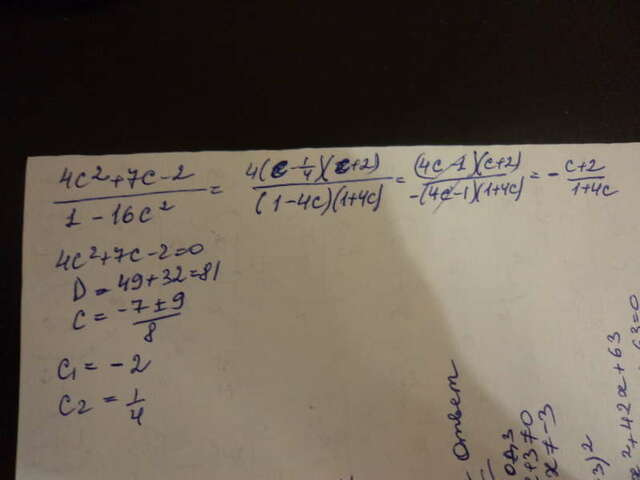 (4c²+7c-2)/(1-16c²) = 4(c-1/4)(c+2)/((1-4c)(1+4c)) = (4c-1)(c+2)/(-(4c-1)(1+4c)) = -(c+2)/(1+4c)
4c²+7c-2=0
D=49+32=81
c=(-7±9)/8
c₁=-2
c₂=1/4
Ответ
x≠-3
x²+42x+63